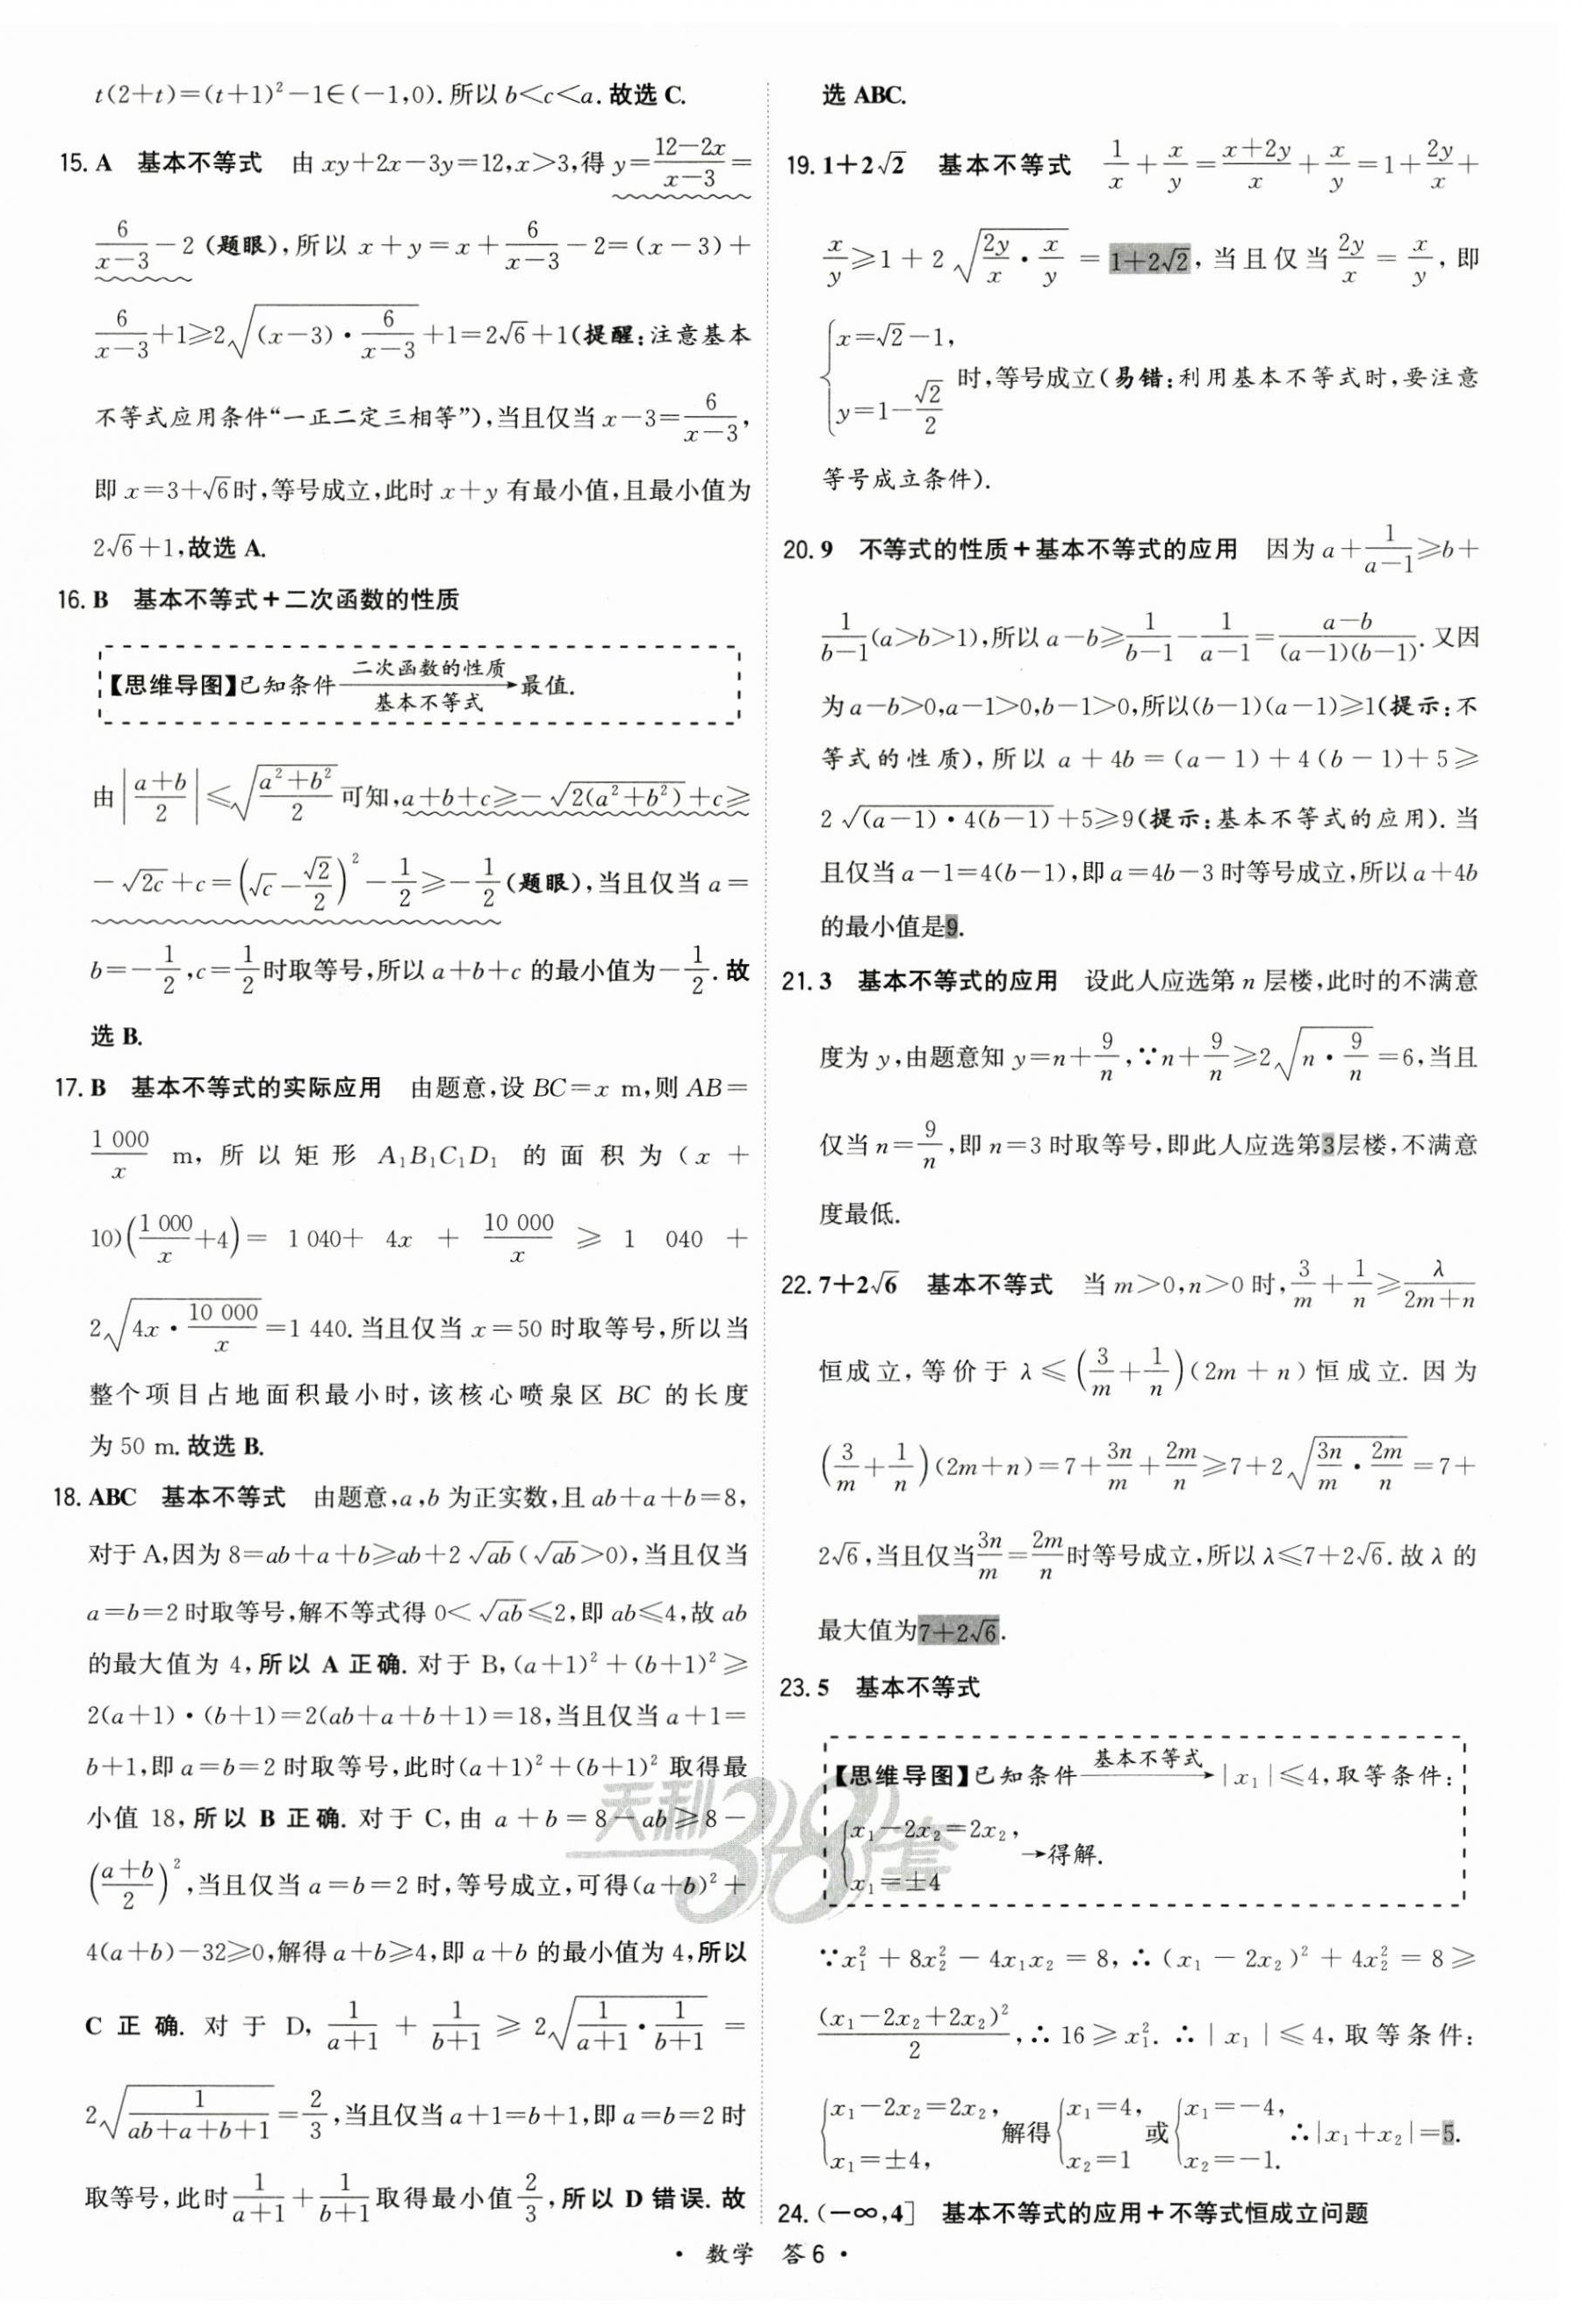 t(2+t)=(t+1)²-1∈(-1,0).所以 b<c<a.故选 C.
15. A 基本不等式 由 xy+2x-3y=12,x>3,得 y=\frac{12-2x}{x-3}=
\frac{6}{x-3}-2 (题眼),所以 x+y=x+\frac{6}{x-3}-2=(x-3)+
\frac{6}{x-3}+1≥2\sqrt{(x-3)·\frac{6}{x-3}}+1=2√6+1(提醒:注意基本
不等式应用条件“一正二定三相等”),当且仅当 x-3=\frac{6}{x-3},
即 x=3+√6时,等号成立,此时 x+y 有最小值,且最小值为
2√6+1,故选 A.
16. B 基本不等式+二次函数的性质
【思维导图】已知条件 \xrightarrow[基本不等式]{二次函数的性质} 最值.
由 |\frac{a+b}{2}|≤\sqrt{\frac{a²+b²}{2}}可知,a+b+c≥-\sqrt{2(a²+b²)}+c≥
-\sqrt{2c}+c=(√c-\frac{√2}{2})²-\frac{1}{2}≥-\frac{1}{2}(题眼),当且仅当 a=
b=-\frac{1}{2},c=\frac{1}{2}时取等号,所以 a+b+c 的最小值为-\frac{1}{2}.故
选 B.
17. B 基本不等式的实际应用 由题意,设 BC=x m,则 AB=
\frac{1 000}{x} m,所以矩形 A₁B₁C₁D₁ 的面积为(x+
10)(\frac{1 000}{x}+4)= 1 040+ 4x + \frac{10 000}{x} ≥ 1 040 +
2\sqrt{4x·\frac{10 000}{x}}=1 440.当且仅当 x=50 时取等号,所以当
整个项目占地面积最小时,该核心喷泉区 BC 的长度
为 50 m.故选 B.
18. ABC 基本不等式 由题意,a,b 为正实数,且 ab+a+b=8,
对于 A,因为 8=ab+a+b≥ab+2\sqrt{ab}(\sqrt{ab}>0),当且仅当
a=b=2 时取等号,解不等式得 0<\sqrt{ab}≤2,即 ab≤4,故 ab
的最大值为 4,所以 A 正确.对于 B,(a+1)²+(b+1)²≥
2(a+1)·(b+1)=2(ab+a+b+1)=18,当且仅当 a+1=
b+1,即 a=b=2 时取等号,此时(a+1)²+(b+1)² 取得最
小值 18,所以 B 正确.对于 C,由 a+b=8-ab≥8-
(\frac{a+b}{2})²,当且仅当 a=b=2 时,等号成立,可得(a+b)²+
4(a+b)-32≥0,解得 a+b≥4,即 a+b 的最小值为 4,所以
C 正确.对于 D,\frac{1}{a+1}+\frac{1}{b+1}≥2\sqrt{\frac{1}{a+1}·\frac{1}{b+1}}=
2\sqrt{\frac{1}{ab+a+b+1}}=\frac{2}{3},当且仅当 a+1=b+1,即 a=b=2 时
取等号,此时\frac{1}{a+1}+\frac{1}{b+1}取得最小值\frac{2}{3},所以 D 错误.故
选 ABC.
19. 1+2√2 基本不等式 \frac{1}{x}+\frac{x}{y}=\frac{x+2y}{x}+\frac{x}{y}=1+\frac{2y}{x}+
\frac{x}{y}≥1+2\sqrt{\frac{2y}{x}·\frac{x}{y}}=1+2√2,当且仅当\frac{2y}{x}=\frac{x}{y},即
{x=√2-1, y=1-\frac{√2}{2} 时,等号成立(易错:利用基本不等式时,要注意
等号成立条件).
20. 9 不等式的性质+基本不等式的应用 因为 a+\frac{1}{a-1}≥b+
\frac{1}{b-1}(a>b>1),所以 a-b≥\frac{1}{b-1}-\frac{1}{a-1}=\frac{a-b}{(a-1)(b-1)}.又因
为 a-b>0,a-1>0,b-1>0,所以(b-1)(a-1)≥1(提示:不
等式的性质),所以 a+4b=(a-1)+4(b-1)+5≥
2\sqrt{(a-1)·4(b-1)}+5≥9(提示:基本不等式的应用).当
且仅当 a-1=4(b-1),即 a=4b-3 时等号成立,所以 a+4b
的最小值是9.
21. 3 基本不等式的应用 设此人应选第 n 层楼,此时的不满意
度为 y,由题意知 y=n+\frac{9}{n},∵n+\frac{9}{n}≥2\sqrt{n·\frac{9}{n}}=6,当且
仅当 n=\frac{9}{n},即 n=3 时取等号,即此人应选第3层楼,不满意
度最低.
22. 7+2√6 基本不等式 当 m>0,n>0 时,\frac{3}{m}+\frac{1}{n}≥\frac{λ}{2m+n}
恒成立,等价于 λ≤(\frac{3}{m}+\frac{1}{n})(2m+n)恒成立.因为
(\frac{3}{m}+\frac{1}{n})(2m+n)=7+\frac{3n}{m}+\frac{2m}{n}≥7+2\sqrt{\frac{3n}{m}·\frac{2m}{n}}=7+
2√6,当且仅当\frac{3n}{m}=\frac{2m}{n}时等号成立,所以 λ≤7+2√6.故 λ 的
最大值为7+2√6.
23. 5 基本不等式
【思维导图】已知条件 \xrightarrow{基本不等式} |x₁|≤4,取等条件:
{x₁-2x₂=2x₂, x₁=±4 →得解.
∵x₁²+8x₂²-4x₁x₂=8,∴(x₁-2x₂)²+4x₂²=8≥
\frac{(x₁-2x₂+2x₂)²}{2},∴16≥x₁².∴|x₁|≤4,取等条件:
{x₁-2x₂=2x₂, x₁=±4, 解得{x₁=4, x₂=1 或{x₁=-4, x₂=-1. ∴|x₁+x₂|=5.
24. (-∞,4] 基本不等式的应用+不等式恒成立问题
天利38套
· 数学 答6 ·